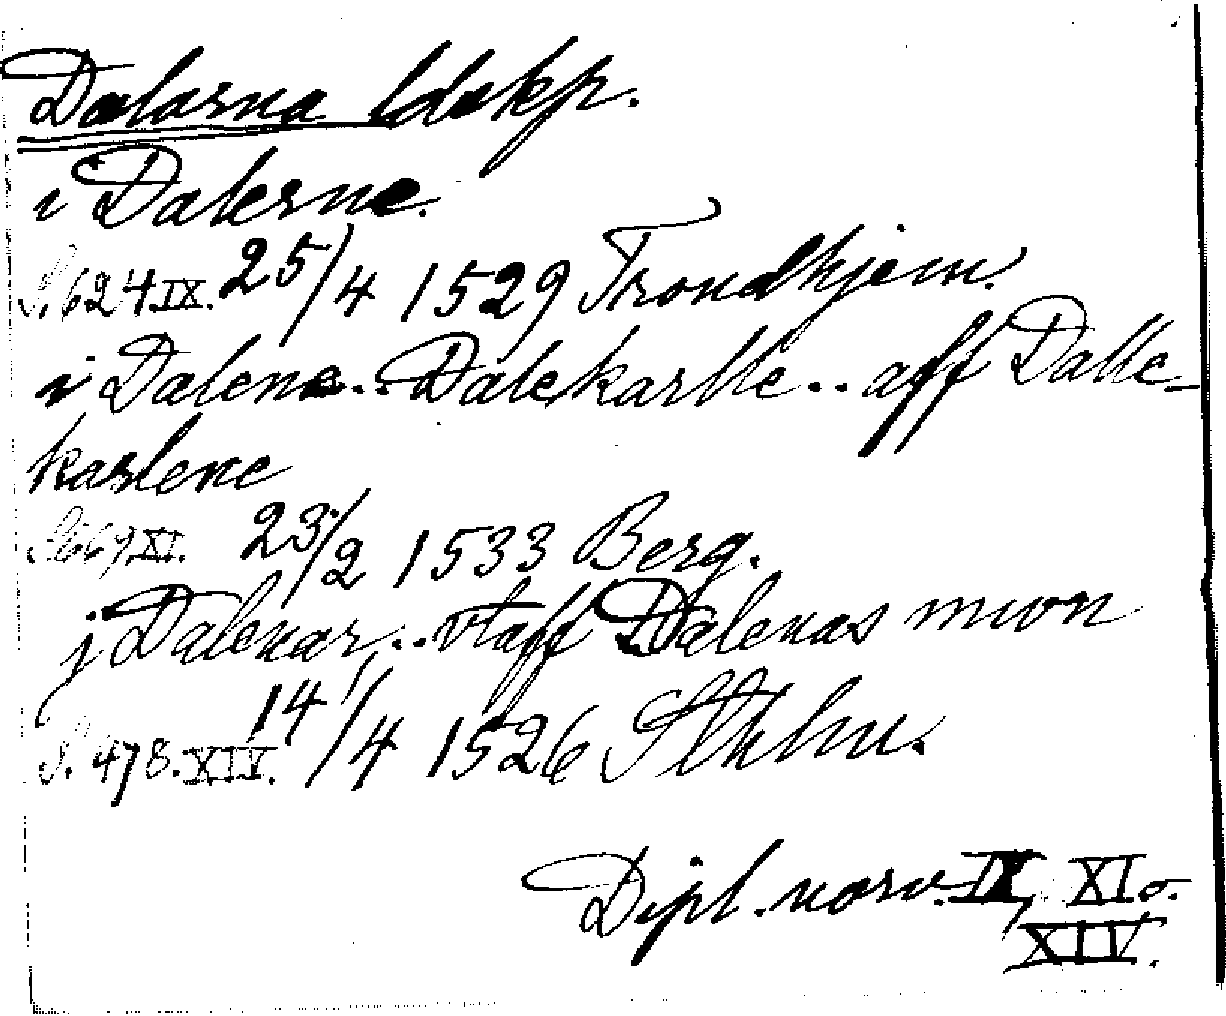 Dalarna ldskp.
i Dalerne.
S. 624 IX. 25/4 1529 Trondhjem.
i Dalene.. Dalekarlle.. aff Dalle-
karlene
S. 669 XI. 23/2 1533 Berg.
j Dalenar.. vtaff Dalenas mwn
S. 478. XIV. 14/4 1526 Sthlm.
Dipl. norv. IX, XI o.
XIV.